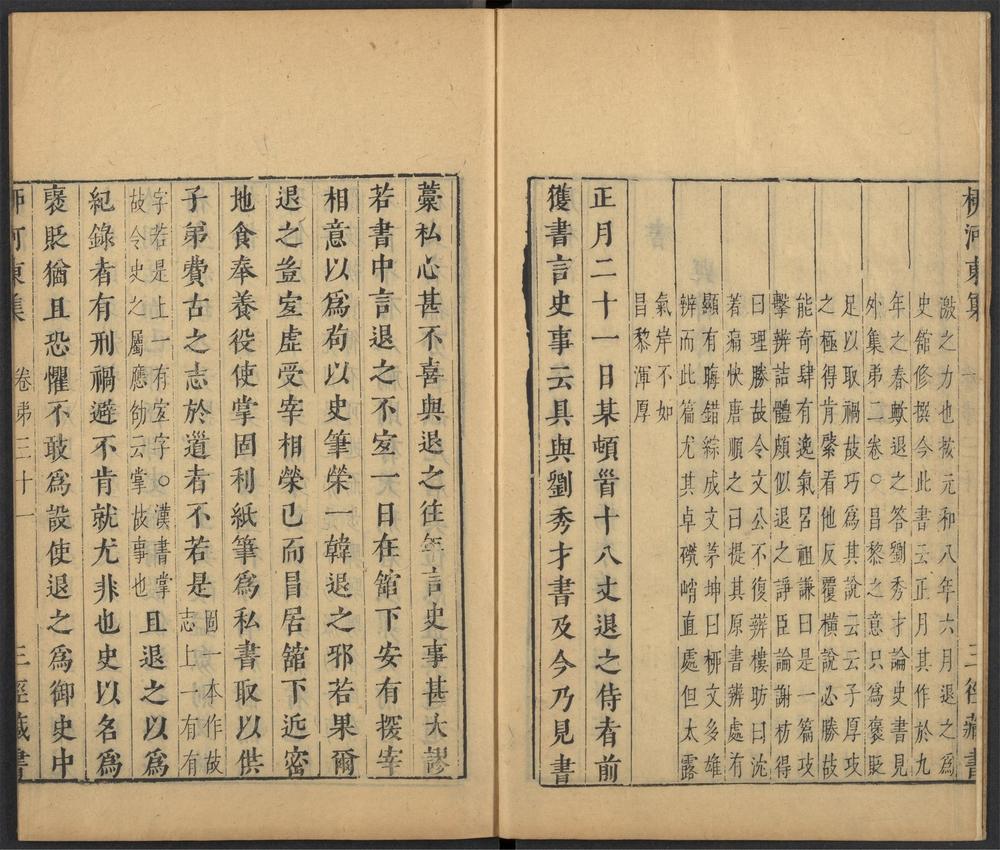 柳河東集 三徑藏書
激之力也按元和八年六月退之爲
史館修撰今此書云正月其作於九
年之春歟退之答劉秀才論史書見
外集弟二卷○昌黎之意只爲褒貶
足以取禍故巧爲其說云云子厚攻
之極得肯綮看他反覆橫說必勝故
能奇肆有逸氣呂祖謙曰是一篇攻
擊辨詰體頗似退之諍臣論謝枋得
曰理勝故令文公不復辨樓昉曰沈
著痛快唐順之曰提其原書辨處有
顯有晦錯綜成文茅坤曰栁文多雄
辨而此篇尤其卓礫峭直處但太露
氣岸不如
昌黎渾厚
正月二十一日某頓首十八丈退之侍者前
獲書言史事云具與劉秀才書及今乃見書
藁私心甚不喜與退之往年言史事甚大謬
若書中言退之不宐一日在館下安有探宰
相意以爲苟以史筆榮一韓退之邪若果爾
退之豈宐虛受宰相榮己而冒居館下近密
地食奉養役使掌固利紙筆爲私書取以供
子弟費古之志於道者不若是固一本作故
志上一有有
字若是上一有宐字○漢書掌
故令史之屬應劭云掌故事也且退之以爲
紀錄者有刑禍避不肯就尤非也史以名爲
褒貶猶且恐懼不敢爲設使退之爲御史中
柳河東集 卷弟三十一 三徑藏書